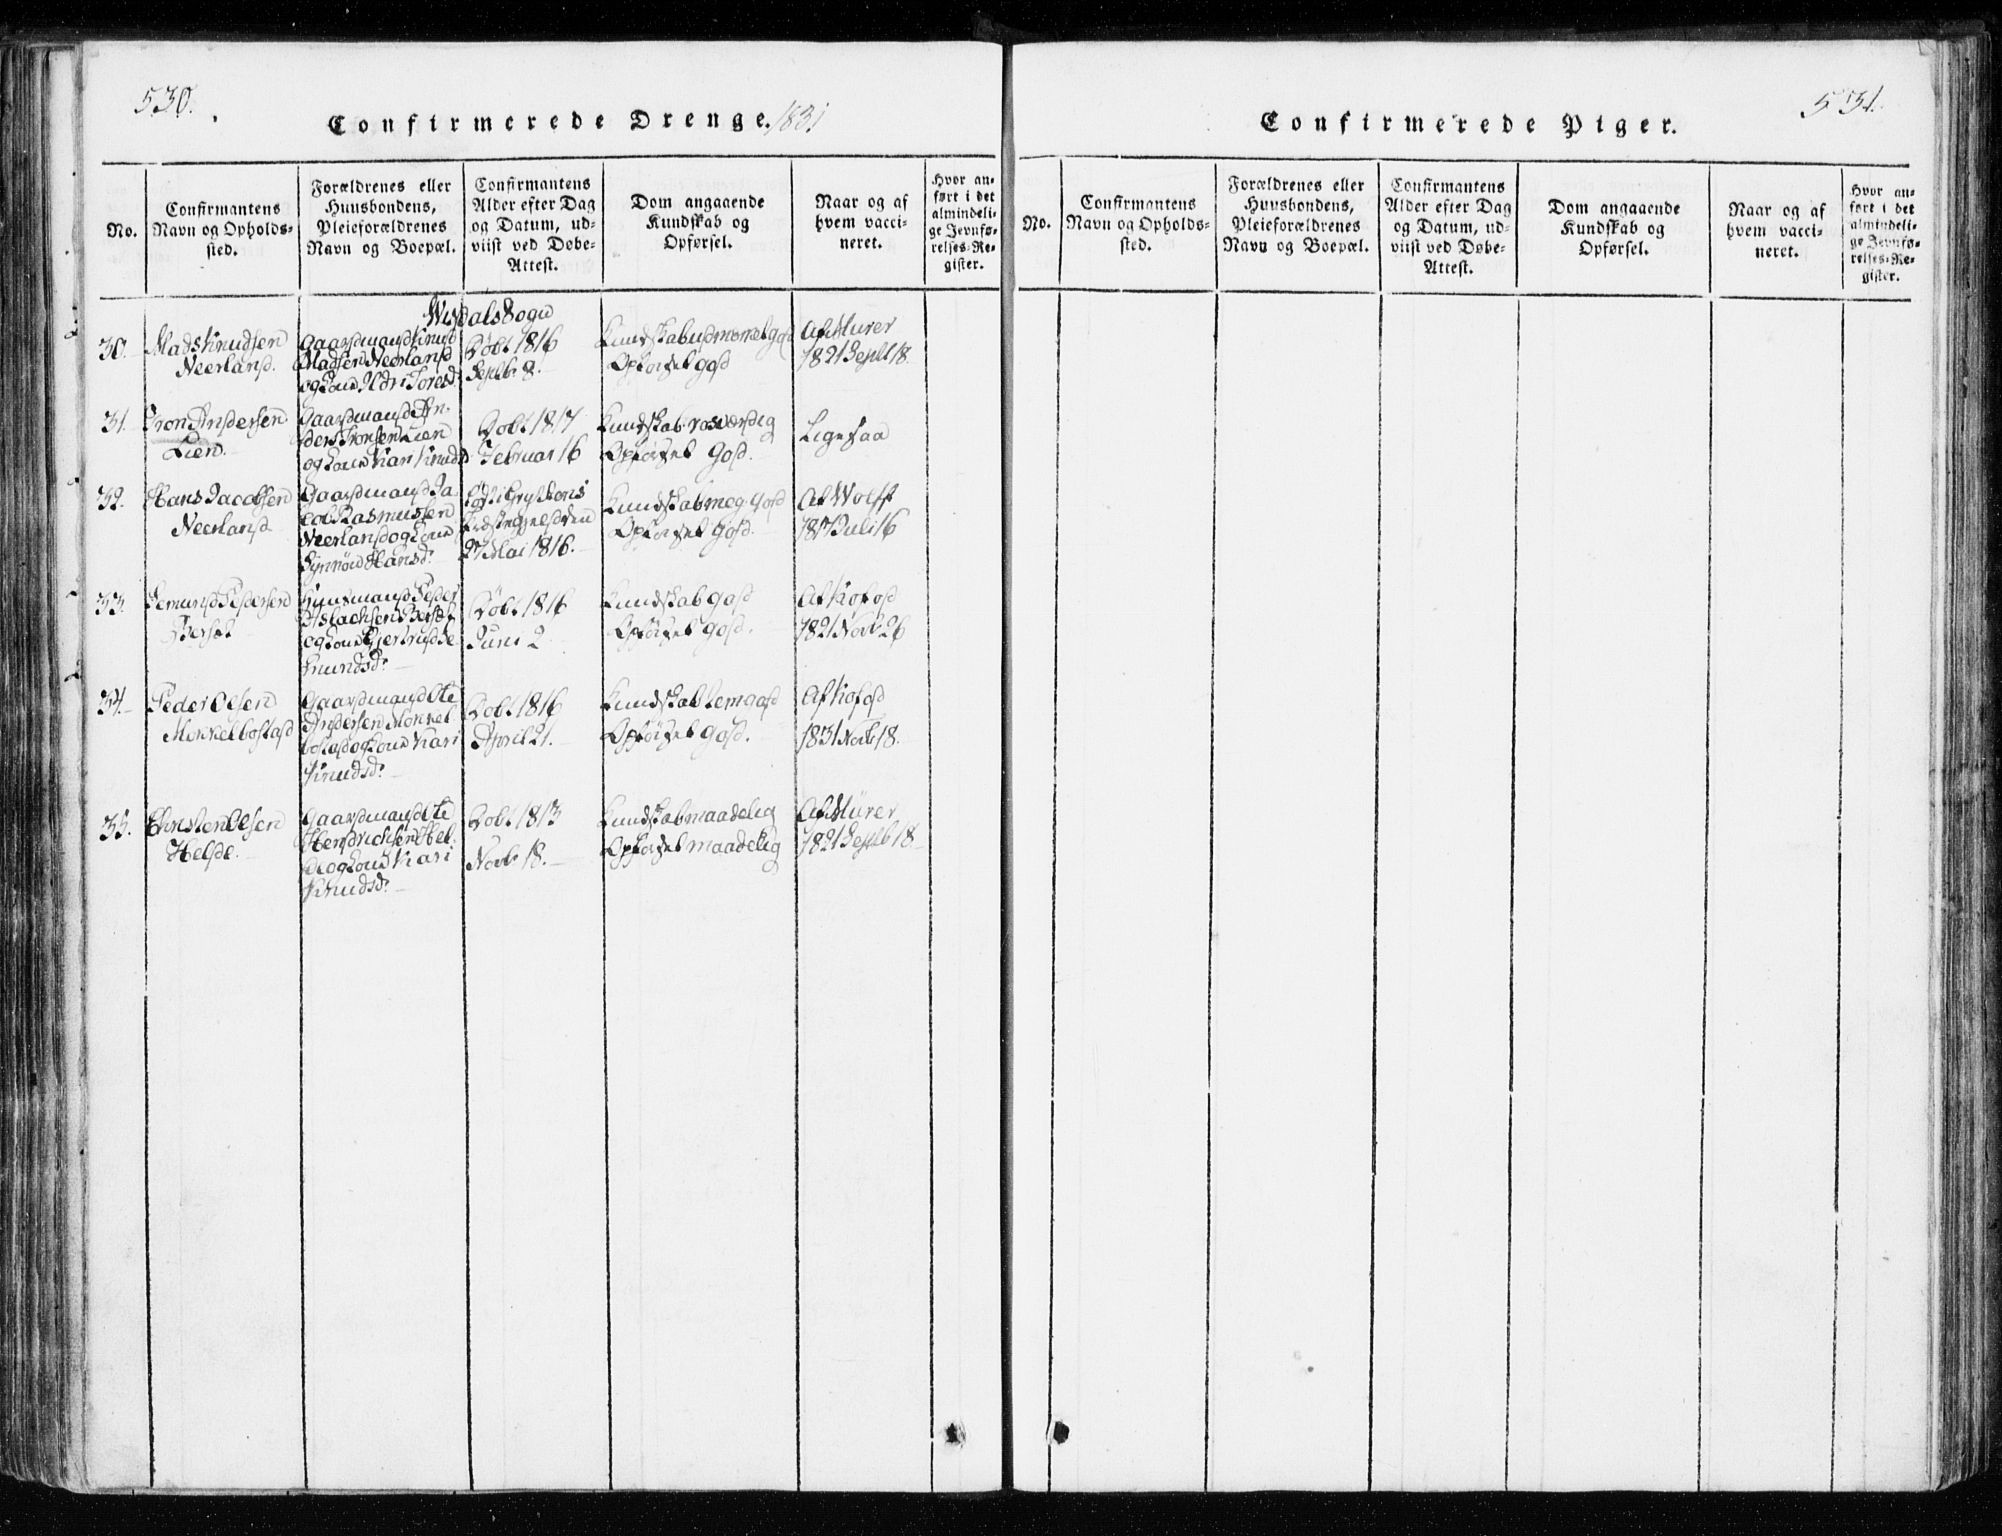 530.
Confirmerede Drenge. 1831
No.
Confirmantens
Navn og Opholds-
sted.
Forældrenes eller
Huusbondens,
Pleieforældrenes
Navn og Boepæl.
Confirmantens
Alder efter Dag
og Datum, ud-
viist ved Døbe-
Attest.
Dom angaaende
Kundskab og
Opførsel.
Naar og af
hvem vacci-
neret.
Hvor an-
ført i det
almindeli-
ge Jevnfø-
relses-Re-
gister.
Sogn
30.
Mads Knudsen
Neerland.
Gaardmand Knud
Madsen Neerland
og Kone
Døbt 1816
Septbr 8.
Kundskab udmærket god
Opførsel god
Af Mürer
1821 Septb 18.
31.
Tron Andersen
Lien.
Gaardmand An-
ders Tronsen Lien
og Kone Kari Knudsd
Døbt 1817
Februar 16
Kundskab rosværdig
Opførsel God.
Ligesaa
32.
Hans Jacobsen
Neerland
Gaardmand Ja-
cob Rasmussen
Neerland og Kone
Hansdr
27 Mai 1816.
Kundskab meg. God
Opførsel God.
Af Wolff
1817 Juli 16
33.
Pedersen
Berset
Huusmand Peder
Aslachsen Berset
og Kone Gjertrud Se-
mundsdr
Døbt 1816
Juni 2
Kundskab god
Opførsel god.
Af Kofod
1821 Novb 26
34.
Peder Olsen
Mikkelbostad
Gaardmand Ole
Andersen Mikkel-
bostad og Kone Kari
Knudsdr
Døbt 1816
April 21.
Kundskab temg god
Opførsel god.
Af Kofod
1831 Novb 18.
35.
Christen Olsen
Helde.
Gaardmand Ole
Hendrichsen Hel-
de og Kone Kari
Knudsdr
Døbt 1813
Novbr 18.
Kundskab maadelig
Opførsel maadelig
Af Mürer
1821 Septb 18
531.
Confirmerede Piger.
No.
Confirmantens
Navn og Opholds-
sted.
Forældrenes eller
Huusbondens,
Pleieforældrenes
Navn og Boepæl.
Confirmantens
Alder efter Dag
og Datum, ud-
viist ved Døbe-
Attest.
Dom angaaende
Kundskab og
Opførsel.
Naar og af
hvem vacci-
neret.
Hvor an-
ført i det
almindeli-
ge Jevnfø-
relses-Re-
gister.